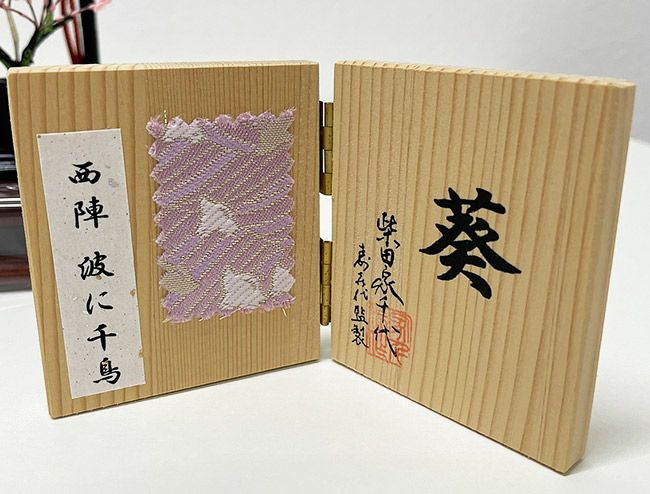 西陣 波に千鳥
葵
柴田家千代
寿不代監製